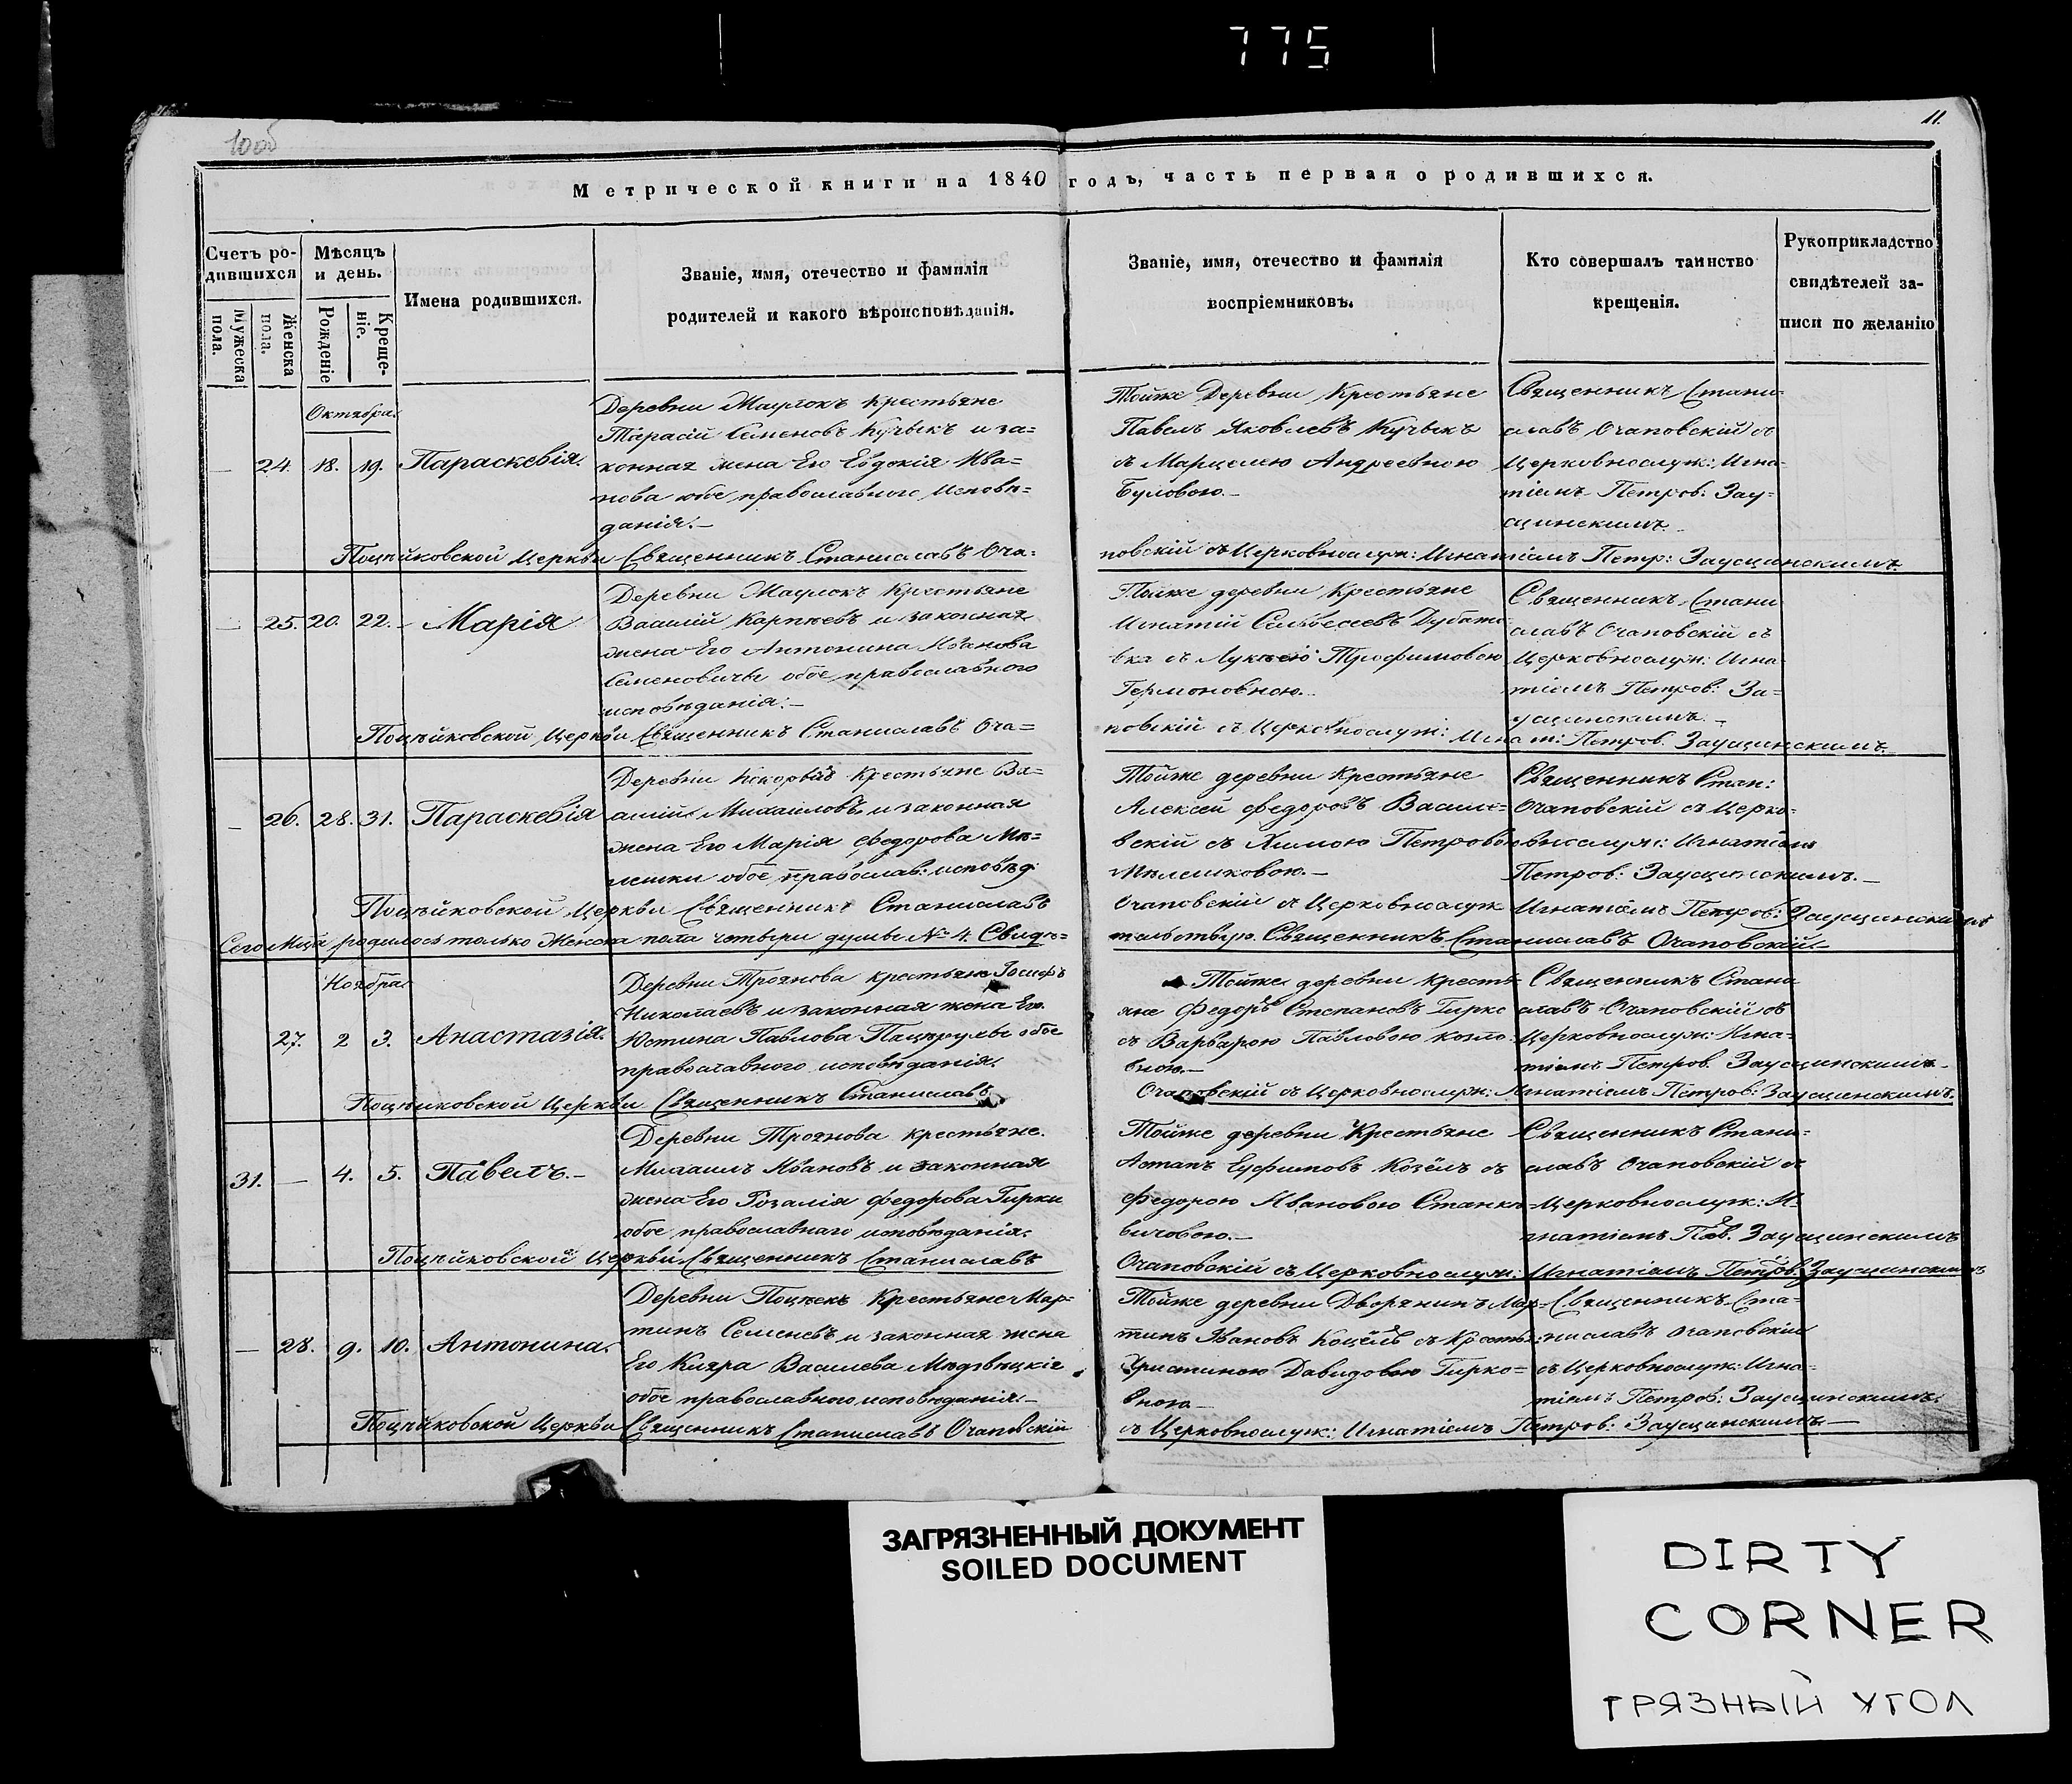 775
100об
11.
Метрической книги на 1840 годъ, часть первая о родившихся.
Счетъ родившихся
Мѣсяцъ и день.
Имена родившихся.
Званіе, имя, отечество и фамилія
родителей и какого вѣроисповѣданія.
Званіе, имя, отечество и фамилія
воспріемниковъ.
Кто совершалъ таинство
крещенія.
Рукоприкладство
свидѣтелей за-
писи по желанію
Мужеска пола.
Женска пола.
Рожденіе
Креще-
ніе.
Октября.
— 24. 18. 19. Параскевія.
Деревни Мацюкъ Крестьяне
Тарасій Семеновъ Кучькъ и за=
конная жена Его Евдокія Ива=
нова обое православного Исповѣ=
данія.—
Тойже Деревни Крестьяне
Павелъ Яковлевъ Кучькъ
съ Марцелею Андреевною
Буловою.—
Священникъ Стани-
славъ Очаповскій съ
Церковнослуж: Игна-
тіемъ Петров: Зау-
сцинскимъ
Поцѣйковской Церкви Священникъ Станиславъ Оча=
повскій съ Церковнослуж: Игнатіемъ Петр: Заусцинскимъ.
— 25. 20. 22. Марія
Деревни Мацюкъ Крестьяне
Василій Карпѣевъ и законная
жена Его Антонина Иванова
Семеновичы обое православного
исповѣданія:—
Тойже деревни Крестьяне
Игнатій Сильвесевъ Дубато
вка съ Лукѣею Трофимовою
Гермоновною.
Священникъ Стани
славъ Очаповскій съ
Церковнослуж: Игна-
тіемъ Петров: За=
усцинскимъ.—
Поцѣйковской Церкви Священникъ Станиславъ Оча=
повскій съ Церковнослуж: Игнат: Петров. Заусцинскимъ.
— 26. 28. 31. Параскевія
Деревни Крестьяне Ва=
силій Михаиловъ и законная
жена Его Марія Федорова Мѣ=
лешки обое православ: исповѣд:
Тойже деревни Крестьяне
Алексей Федоровъ Василе=
вскій съ Химою Петровою
Мѣлешковою.—
Священникъ Стан:
Очаповскій съ Церко-
внослуж: Игнатіемъ
Петров: Заусцинскимъ.—
Поцѣйковской Церкви Священникъ Станиславъ
Очаповскій съ Церковнослуж Игнатіемъ Петров: Заусцинскимъ
Сего Мца родилось только Женска пола четыри душы № 4. Свидѣ=
тельствую. Священникъ Станиславъ Очаповскій—
Ноября
27. 2 3. Анастазія.
Деревни Троянова крестьяне Іосифъ
Николаевъ и законная жена Его
Юстина Павлова обое
православного исповѣданія.
Тойже деревни Кресть-
яне Федоръ Степановъ Гирко
съ Варварою Павловою Козло-
вною.—
Священникъ Стани
славъ Очаповскій съ
Церковнослуж: Игна-
тіемъ Петров. Заусцинскимъ—
Поцѣйковской Церкви Священникъ Станиславъ
Очаповскій съ Церковнослуж: Игнатіемъ Петров: Заусцинскимъ.
31. — 4. 5. Павелъ.—
Деревни Троянова крестьяне.
Михаилъ Ивановъ и законная
жена Его Розалія Федорова Гирки
обое православнаго исповѣданія.
Тойже деревни Крестьяне
Астапъ Еуфимовъ Козёлъ съ
Федорою Ивановою Станке-
вичовою.—
Священникъ Стани-
славъ Очаповскій съ
Церковнослуж: И-
гнатіемъ Заусцинскимъ
Поцѣйковской Церкви Священникъ Станиславъ
Очаповскій съ Церковнослуж: Игнатіемъ Петров. Заусцинскимъ
— 28. 9. 10. Антонина.
Деревни Поцѣекъ Крестьяне Мар-
тинъ Семеневъ и законная жена
Его Кляра Василева Мѣдвѣцкіе
обое православного исповѣданія.—
Тойже деревни Дворянинъ Мар-
тинъ Ивановъ Коцёлъ съ Кресть:
Христиною Давидовою Гирко=
вною—
Священникъ Ста-
ниславъ Очаповскій
съ Церковнослуж: Игна-
тіемъ Петров: Заусцинскимъ.
Поцѣйковской Церкви Священникъ Станиславъ Очаповскій
съ Церковнослуж: Игнатіемъ Петров: Заусцинскимъ.—
ЗАГРЯЗНЕННЫЙ ДОКУМЕНТ
SOILED DOCUMENT
DIRTY
CORNER
ГРЯЗНЫЙ УГОЛ